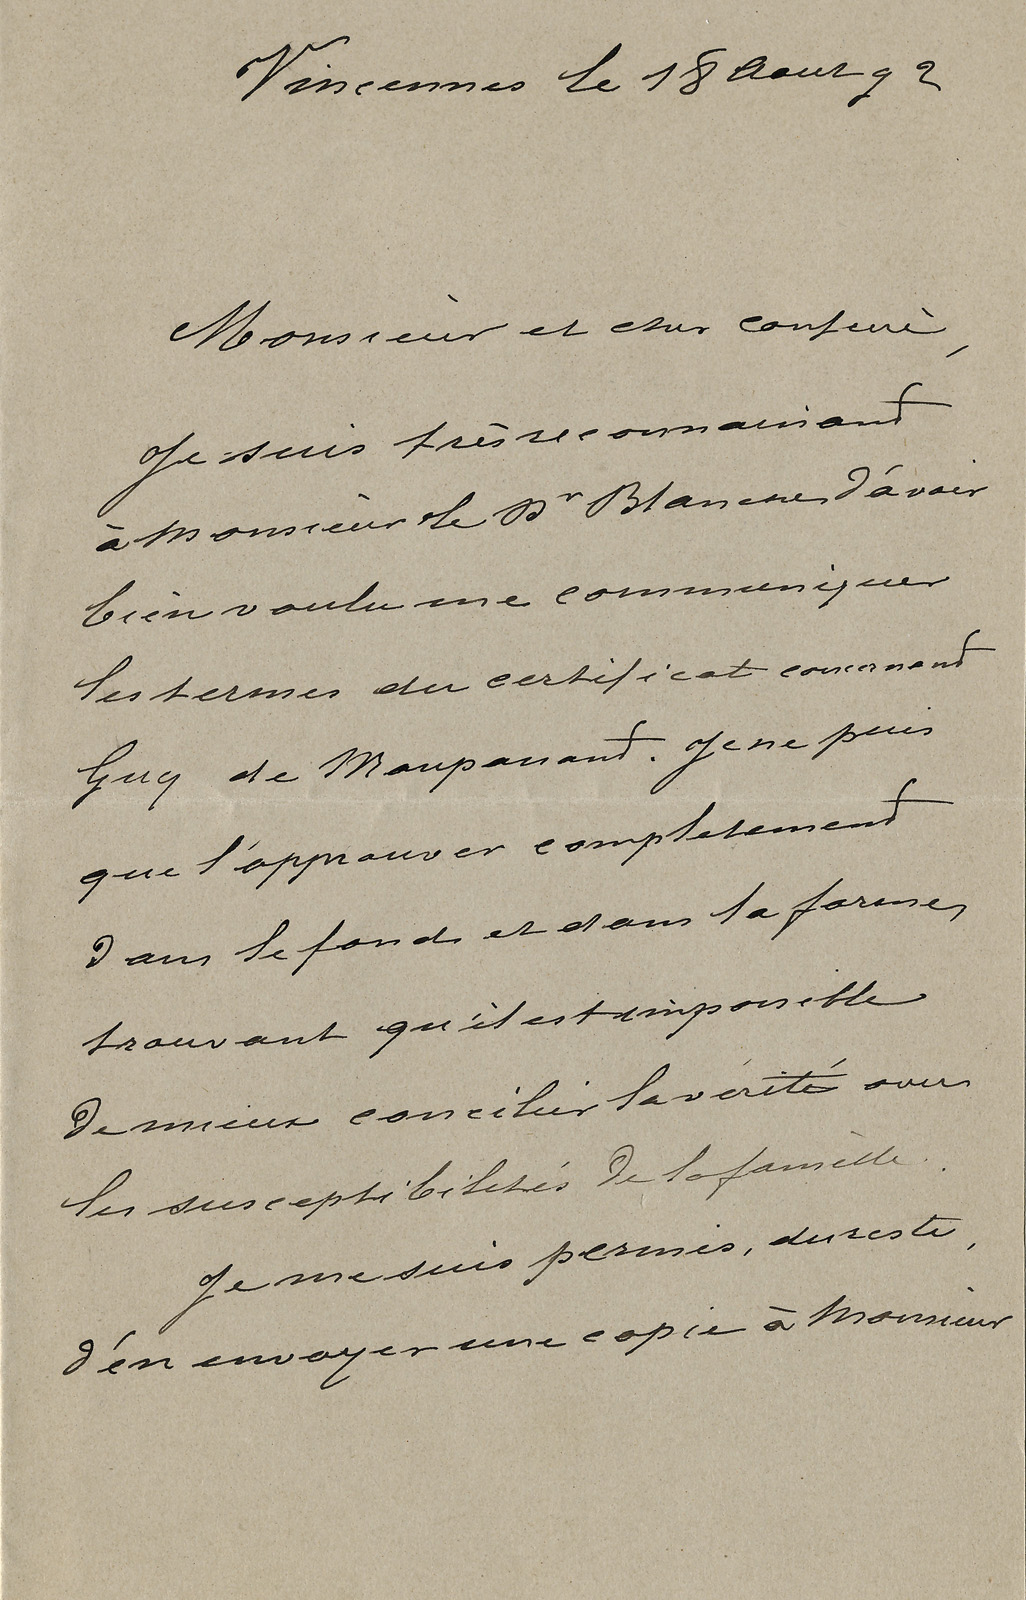 Vincennes le 18 Aout 92
Monsieur et cher confrère,
Je suis très reconnaissant
à Monsieur le Dr Blanche d'avoir
bien voulu me communiquer
les termes du certificat concernant
Guy de Maupassant. Je ne puis
que l'approuver completement
dans le fond et dans la forme,
trouvant qu'il est impossible
de mieux concilier la vérité avec
les susceptibilités de la famille.
Je me suis permis, du reste,
d'en envoyer une copie à Monsieur